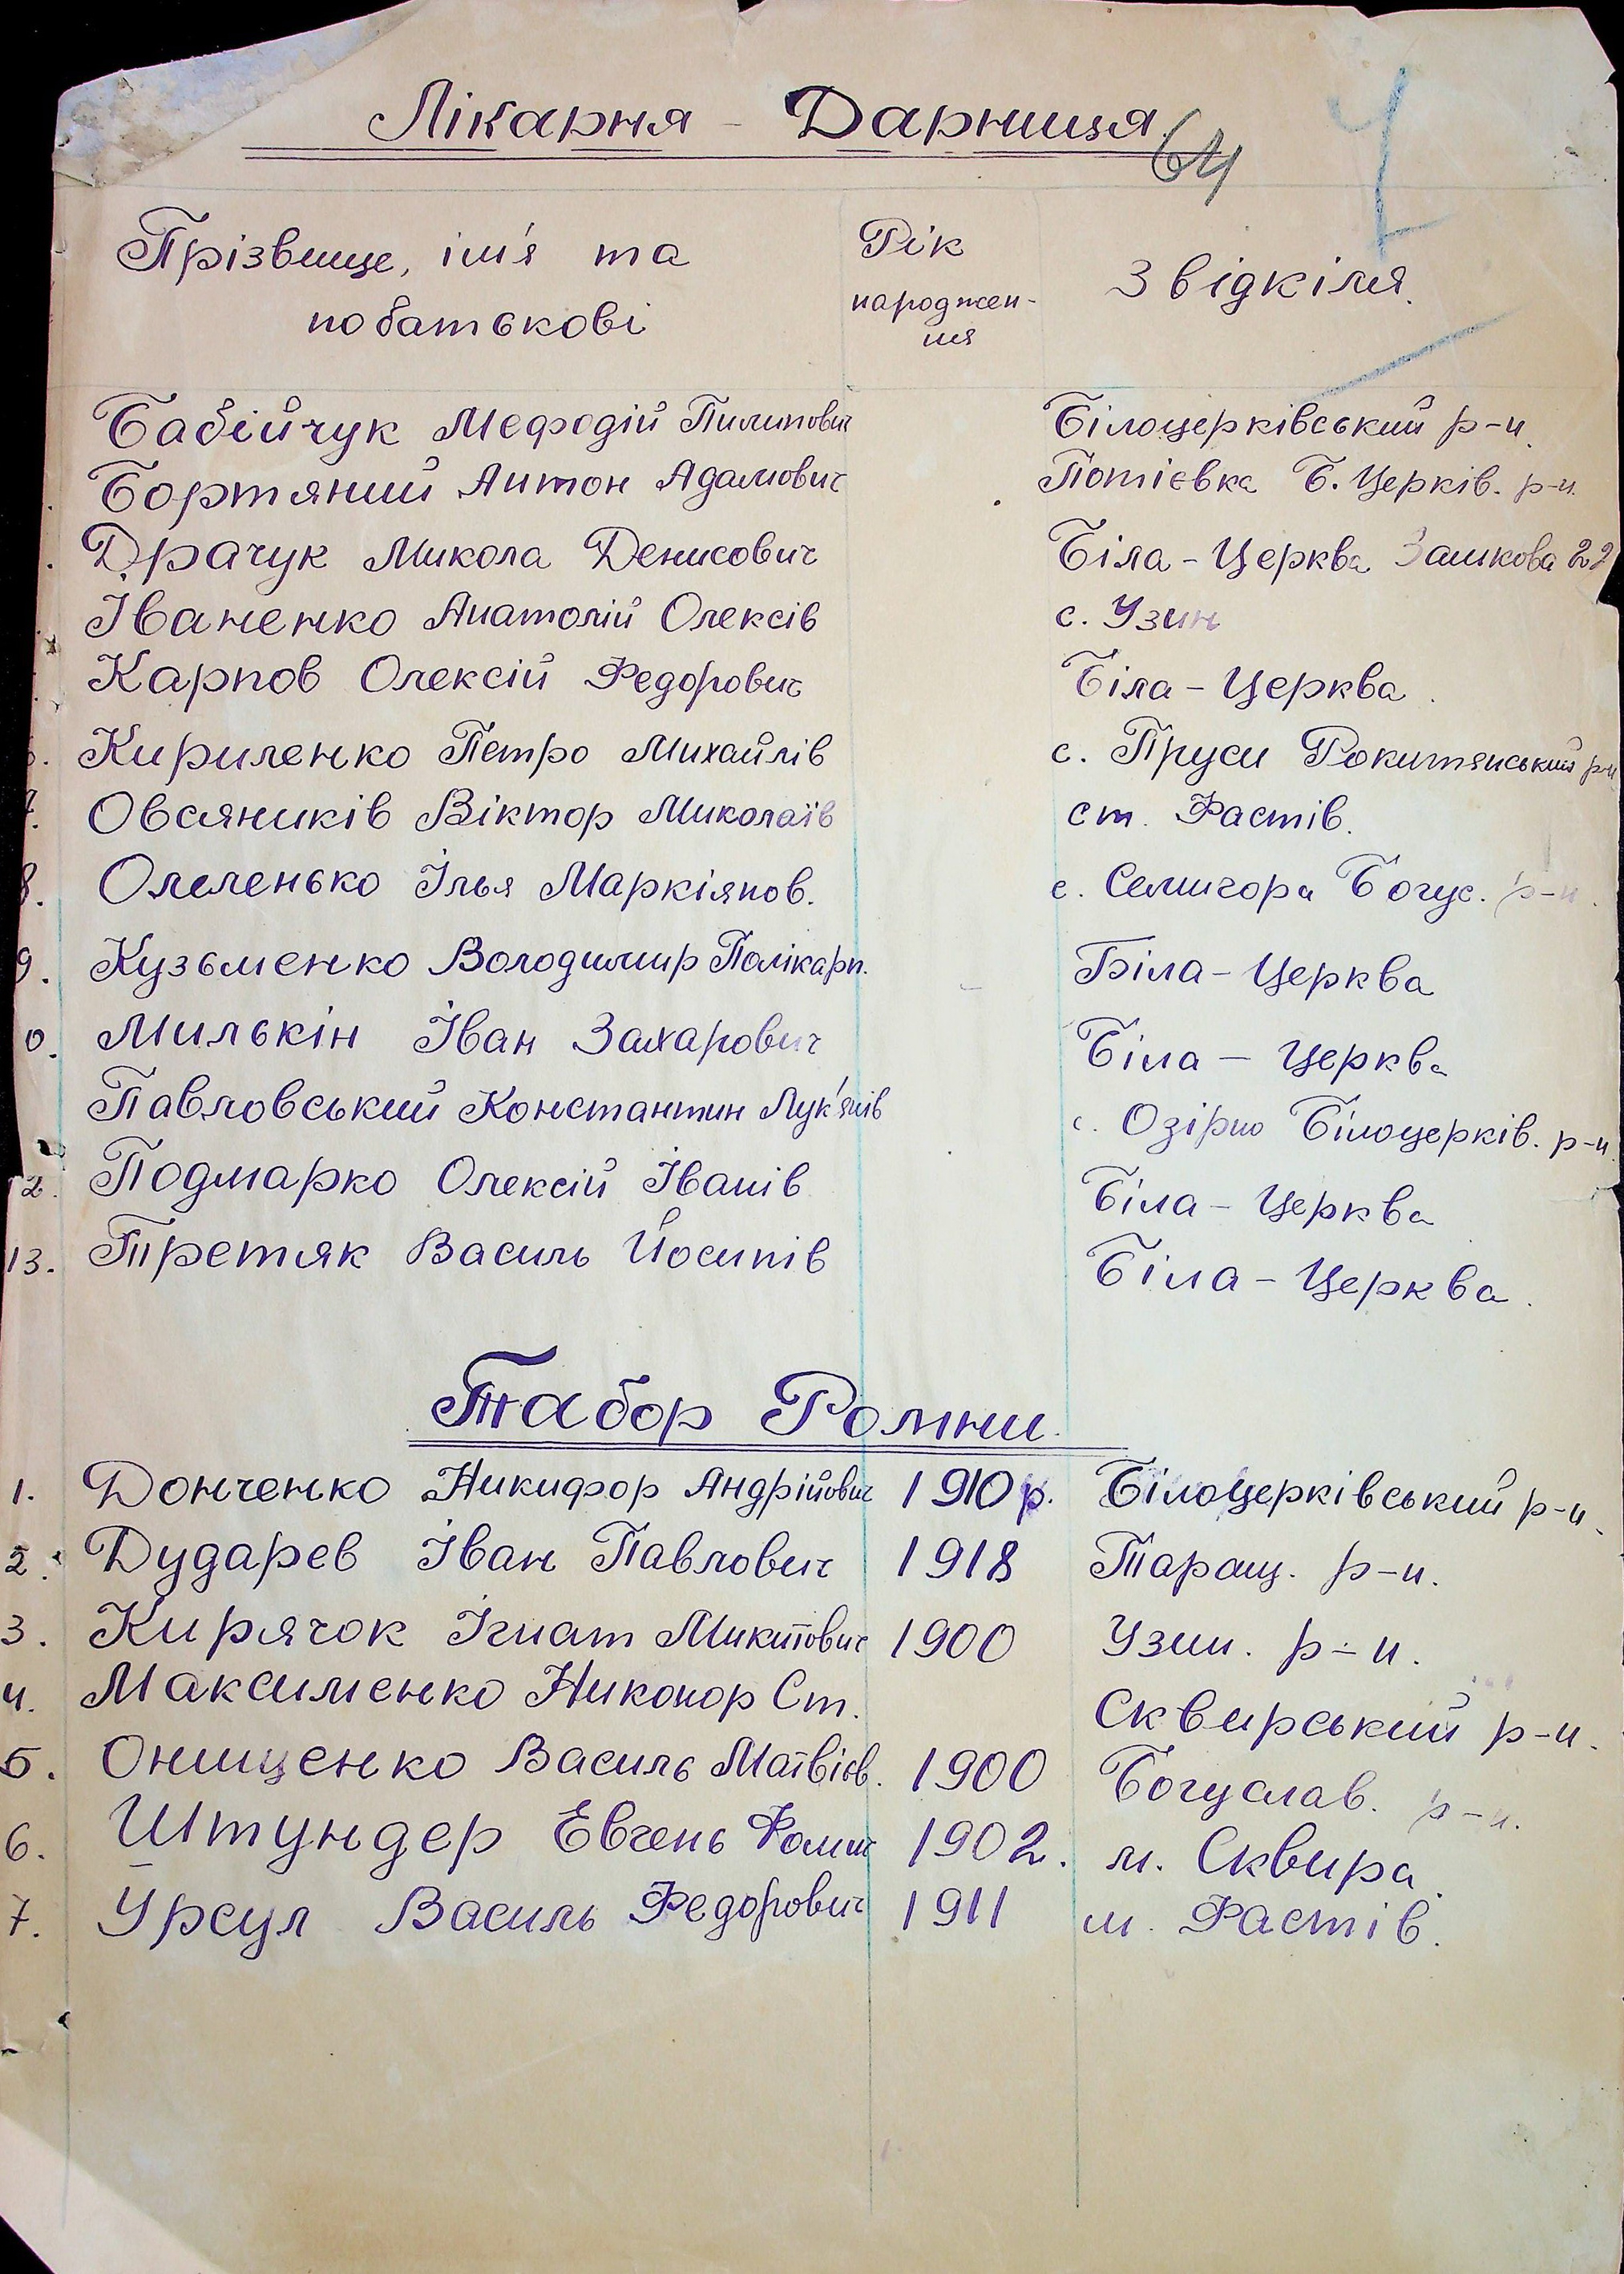 Лікарня - Дарниця.
64
Прізвище, ім'я та
по батькові
Рік
народжен-
ня
Звідкіля.
Бабійчук Мефодій Пилипович Білоцерківський р-н.
Бортяний Антон Адамович Потієвка Б. Церків. р-н.
Драчук Микола Денисович Біла-Церква 22
Іваненко Анатолій Олексів с. Узин
Карпов Олексій Федорович Біла-Церква.
Кириленко Петро Михайлів с. Пруси Рокитянський р-н
7. Овсяників Віктор Миколаїв ст. Фастів.
8. Олеленько Ілья Маркіянов. с. Семигора Богус. р-н.
9. Кузьменко Володимир Полікарп. Біла-Церква
0. Милькін Іван Захарович Біла - Церква
Павловський Константин Лук'янів с. Озірно Білоцерків. р-н.
2. Подмарко Олексій Іванів Біла-Церква
13. Третяк Василь Йосипів Біла-Церква.
Табор Ромни.
1. Донченко Никифор Андрійович 1910 р. Білоцерківський р-н.
2. Дударев Іван Павлович 1918 Таращ. р-н.
3. Кирячок Ігнат Микитович 1900 Узин. р-н.
4. Максименко Никонор Ст. Сквирський р-н.
5. Онищенко Василь Матвієв. 1900 Богуслав. р-н.
6. Штундер Евгень Фомич 1902. м. Сквира.
7. Урсул Василь Федорович 1911 м. Фастів.